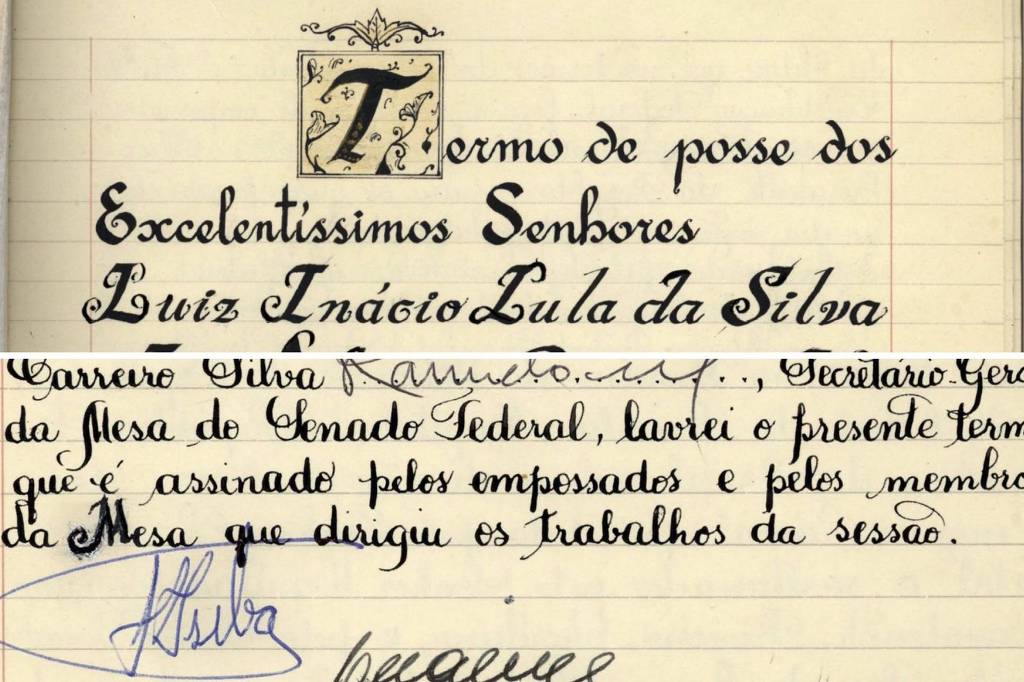 Termo de posse dos
Excelentíssimos Senhores
Luiz Inácio Lula da Silva
Carreiro Silva ..., Secretário-Gera
da Mesa do Senado Federal, lavrei o presente term
que é assinado pelos empossados e pelos membro
da Mesa que dirigiu os trabalhos da sessão.